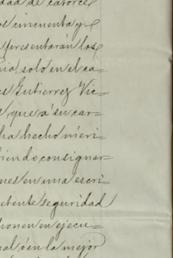 dad de catorce
os cincuenta y
presentarán los
rio, solo en el ca=
es Gutierrez Vic=
e, que a su car=
ha hecho méri=
biendo consignar=
nes en una escri=
utente seguridad
ponen en ejecu=
mal ó en la mejor